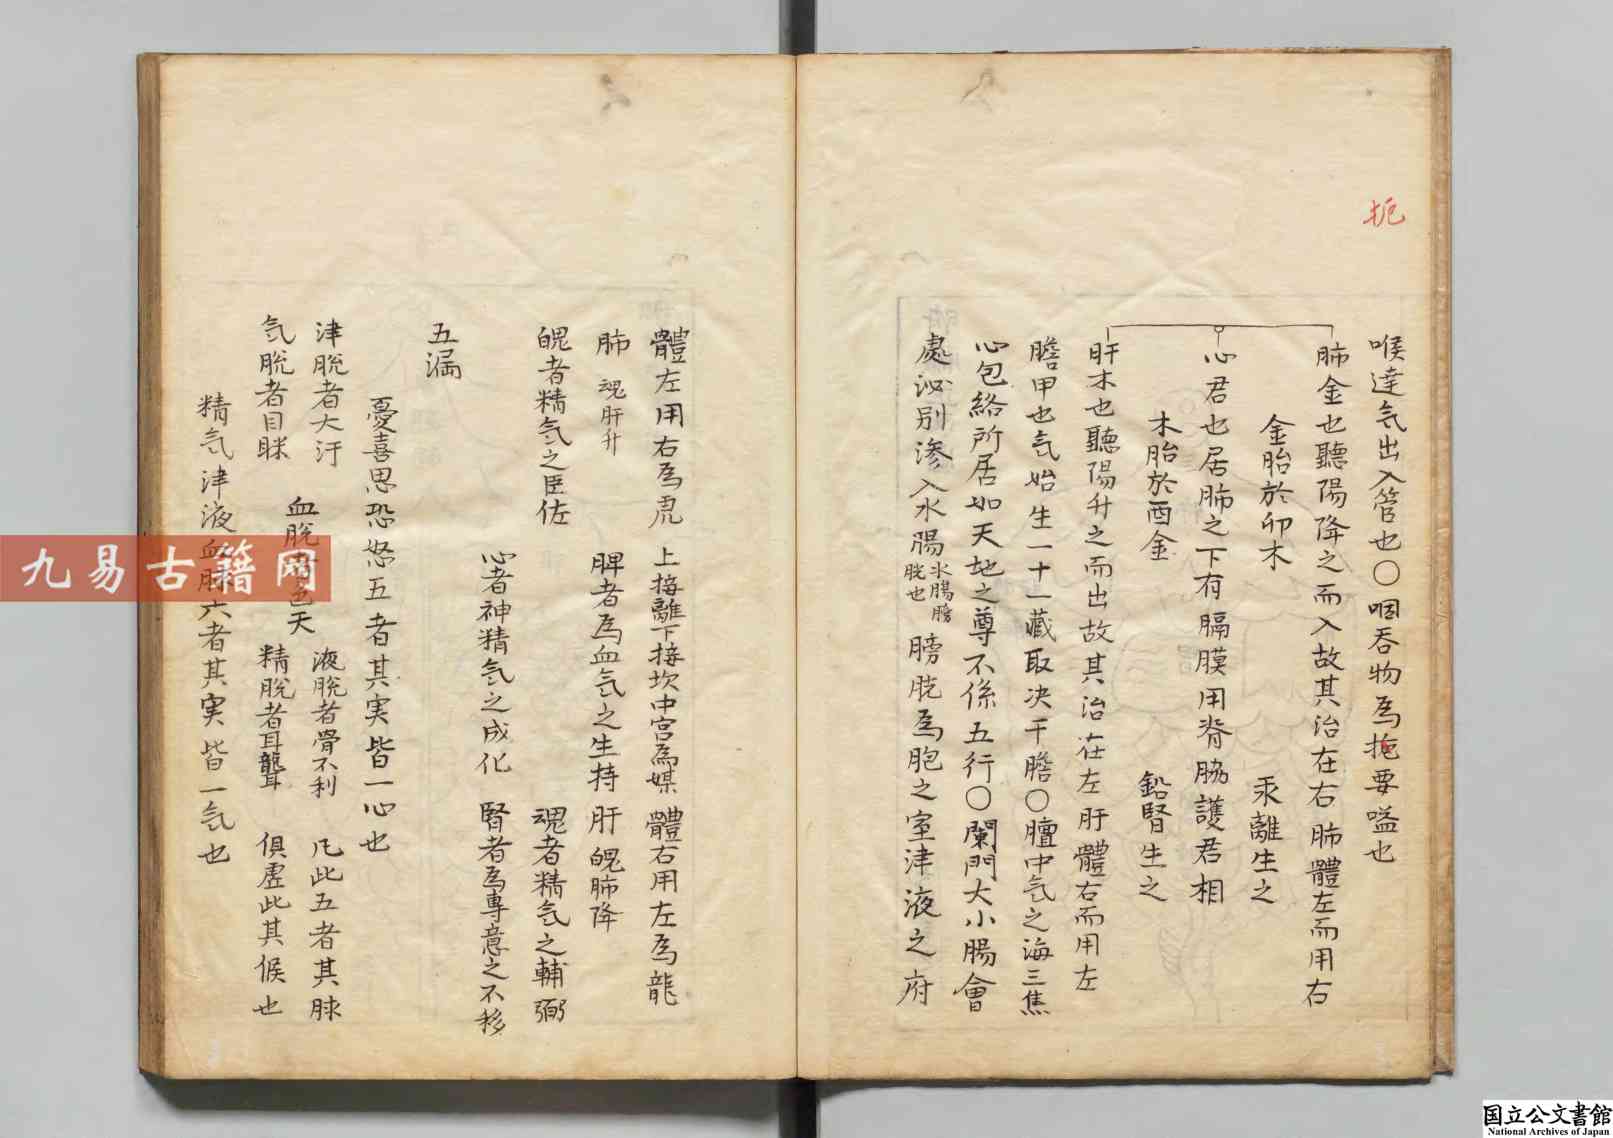 扼
喉達气出入管也〇咽吞物為扼要嗌也
肺金也聽陽降之而入故其治在右 肺體左而用右
金胎於卯木 汞離生之
心君也居肺之下有膈膜用脊脇護君相
木胎於酉金 鉛腎生之
肝木也聽陽升之而出故其治在左 肝體右而用左
膽甲也气始生一十一藏取决于膽〇膻中气之海三焦
心包絡所居如天地之尊不係五行〇闌門大小腸會
處泌別滲入水腸水腸膀胱也膀胱為胞之室津液之府
體左用右為虎 上接離下接坎中宮為媒 體右用左為龍
肺 魂肝升 脾者為血气之生持 肝 魄肺降
魄者精气之臣佐 魂者精气之輔弼
心者神精气之成化 腎者為專意之不移
五漏
憂喜思恐怒五者其実皆一心也
津脫者大汙 液脫者骨不利 凡此五者其脉
血脫者色天
气脫者目眯 精脫者耳聾 俱虛此其候也
精气津液血脉六者其実皆一气也
九易古籍网
国立公文書館
National Archives of Japan